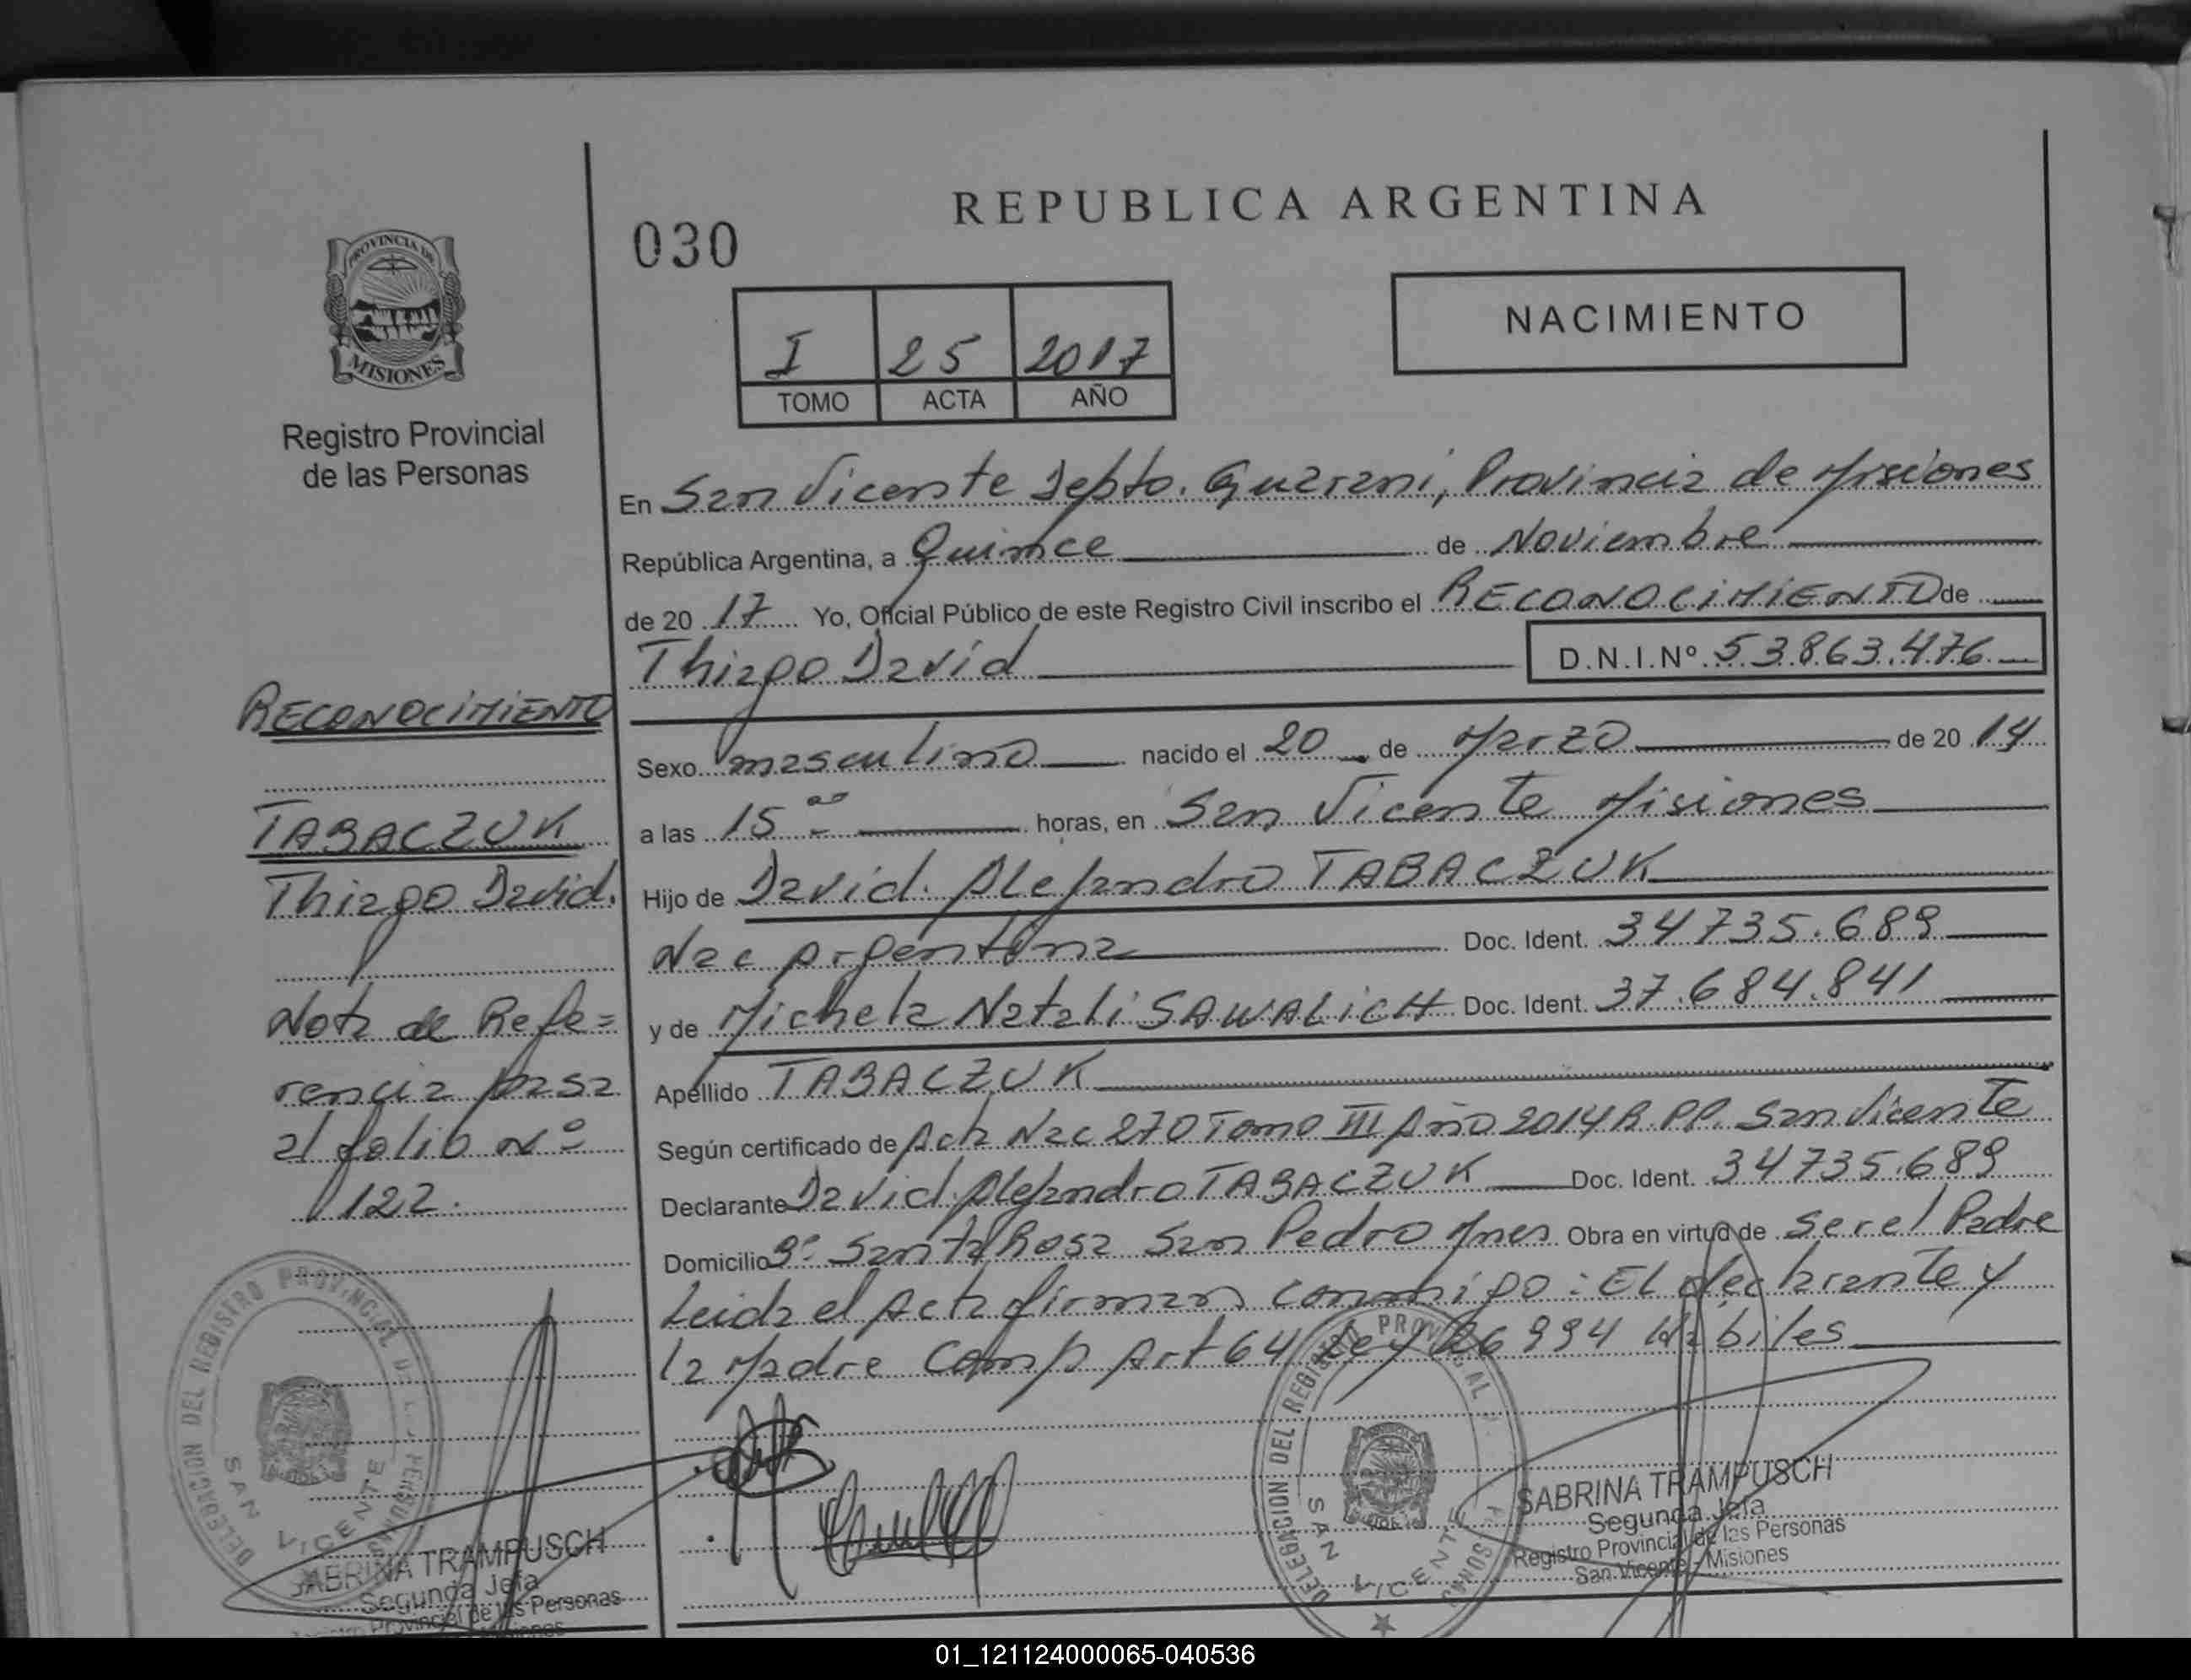 REPUBLICA ARGENTINA
030
NACIMIENTO
I 25 2017
TOMO ACTA AÑO
PROVINCIA DE
MISIONES
Registro Provincial
de las Personas
En San Vicente Depto. Guarani, Provincia de Misiones
República Argentina, a Quince de Noviembre
de 20 17 Yo, Oficial Público de este Registro Civil inscribo el RECONOCIMIENTO de
Thiago David D.N.I.Nº 53.863.476
Sexo masculino nacido el 20 de Marzo de 2014
a las 15 00 horas, en San Vicente Misiones
Hijo de David Alejandro TABACZUK
Nac Argentina Doc. Ident. 34735.689
y de Michela Natali SAWALICH Doc. Ident. 37.684.841
Apellido TABACZUK
Según certificado de Acta Nac 270 Tomo III Año 2014 R.PP. San Vicente
Declarante David Alejandro TABACZUK Doc. Ident. 34735.689
Domicilio Bº Santa Rosa San Pedro Mnes Obra en virtud de ser el Padre
Leida el Acta firman conmigo: El declarante y
la Madre Comp Art 64 Ley 26994 Habiles
RECONOCIMIENTO
TABACZUK
Thiago David.
Nota de Refe=
rencia pasa
al folio Nº
122.
DELEGACION DEL REGISTRO PROVINCIAL DE LAS PERSONAS
SAN VICENTE
SABRINA TRAMPUSCH
Segunda Jefa
Registro Provincial de las Personas
Misiones
DELEGACION DEL REGISTRO PROVINCIAL
PERSONAS
SAN VICENTE
SABRINA TRAMPUSCH
Segunda Jefa
Registro Provincial de las Personas
San Vicente - Misiones
01_121124000065-040536